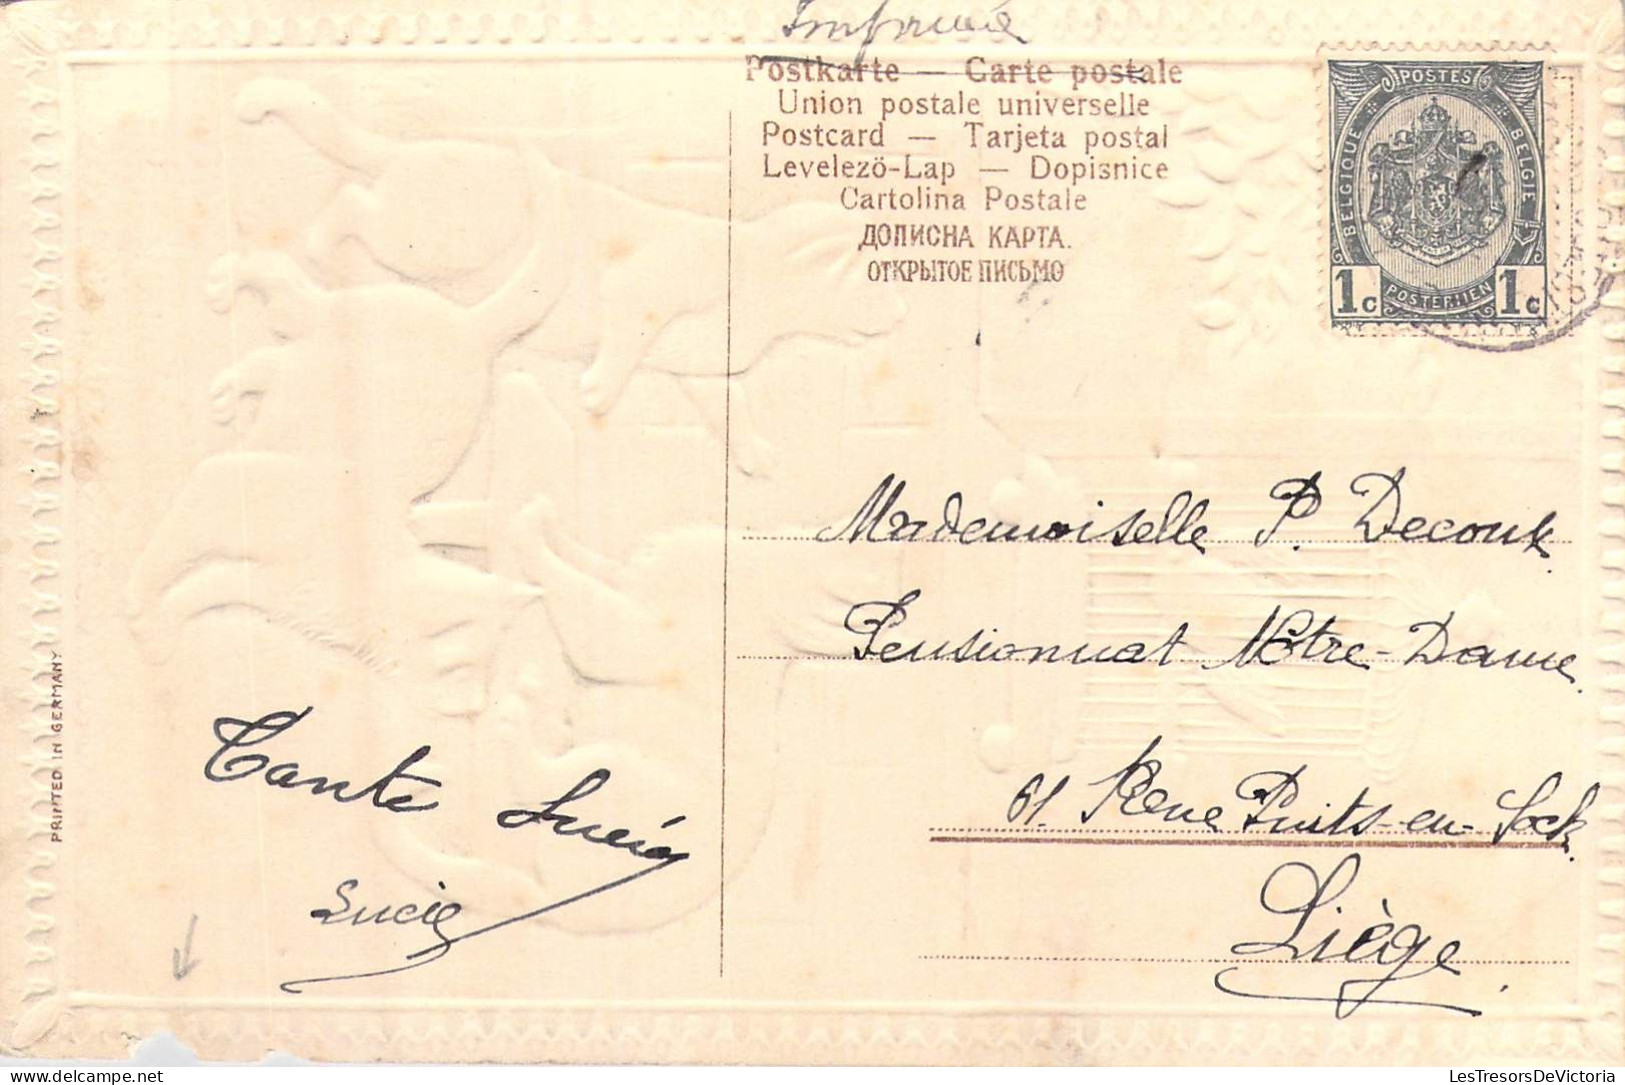 Imprimé
Postkarte — Carte postale
Union postale universelle
Postcard — Tarjeta postal
Levelezö-Lap — Dopisnice
Cartolina Postale
ДОПИСНА КАРТА.
ОТКРЫТОЕ ПИСЬМО
POSTES
BELGIQUE
BELGIË
1c POSTERIJEN 1c
Mademoiselle P. Decouk
Pensionnat Nôtre-Dame
61. Rue Puits-en-Sock
Liège.
Tante Lucie
Lucie
PRINTED IN GERMANY
LesTresorsDeVictoria